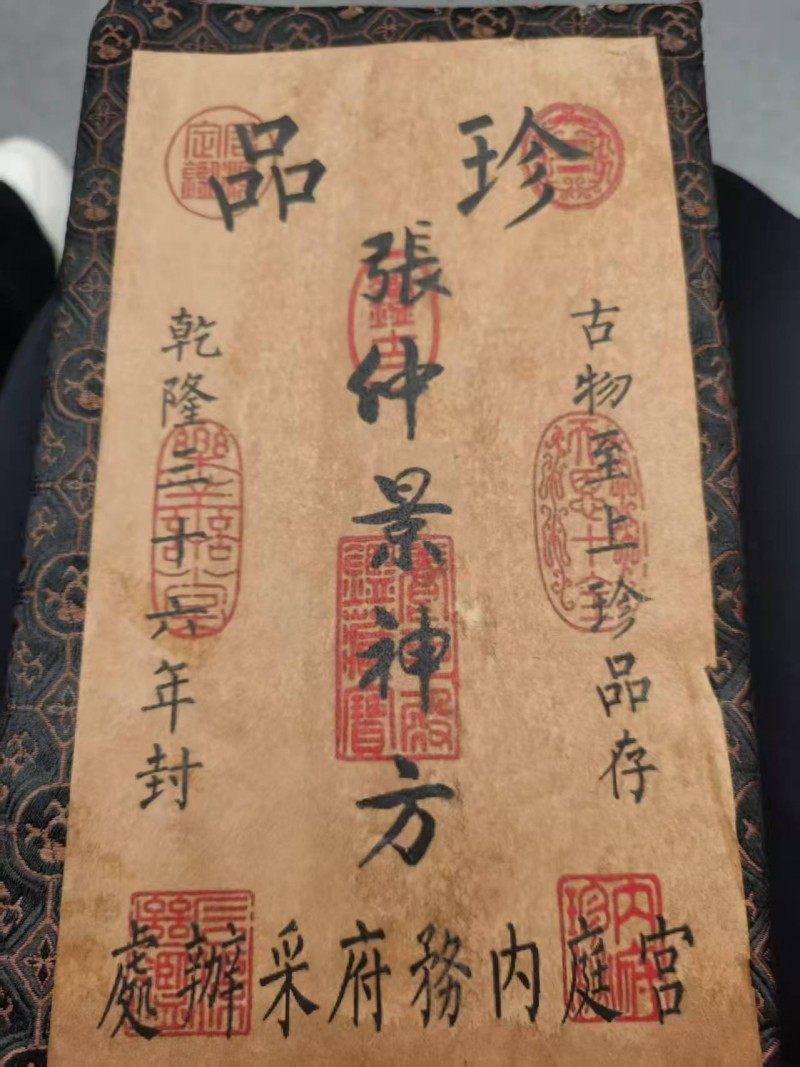 珍品
古物至上珍品存
張仲景神方
乾隆三十六年封
宮庭内務府采辦處